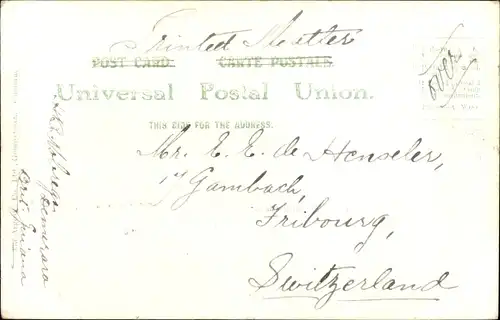 Printed Matter
POST CARD. CARTE POSTALE.
Universal Postal Union.
THIS SIDE FOR THE ADDRESS.
over
Mr. E. E. de Henseler,
17 Gambach,
Fribourg,
Switzerland
Demerara
Brit. Guiana